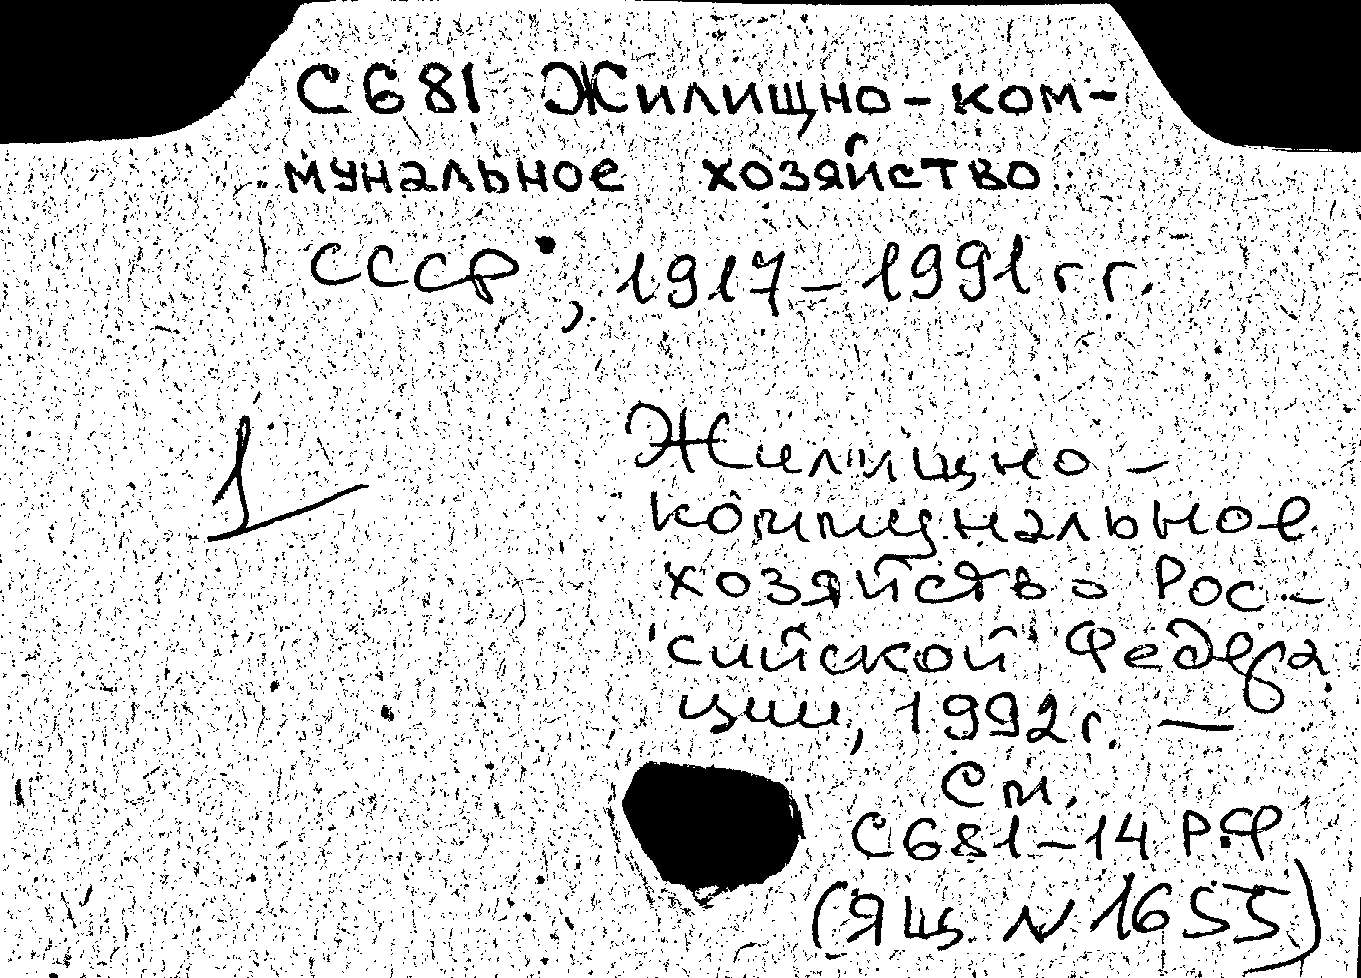 С681 Жилищно-ком-
мунальное хозяйство
СССР, 1917-1991 гг.
1
Жилищно-
коммунальное
хозяйство Рос-
сийской Федера
ции, 1992г. —
См.
С681-14 РФ
(Ящ. N 1655)